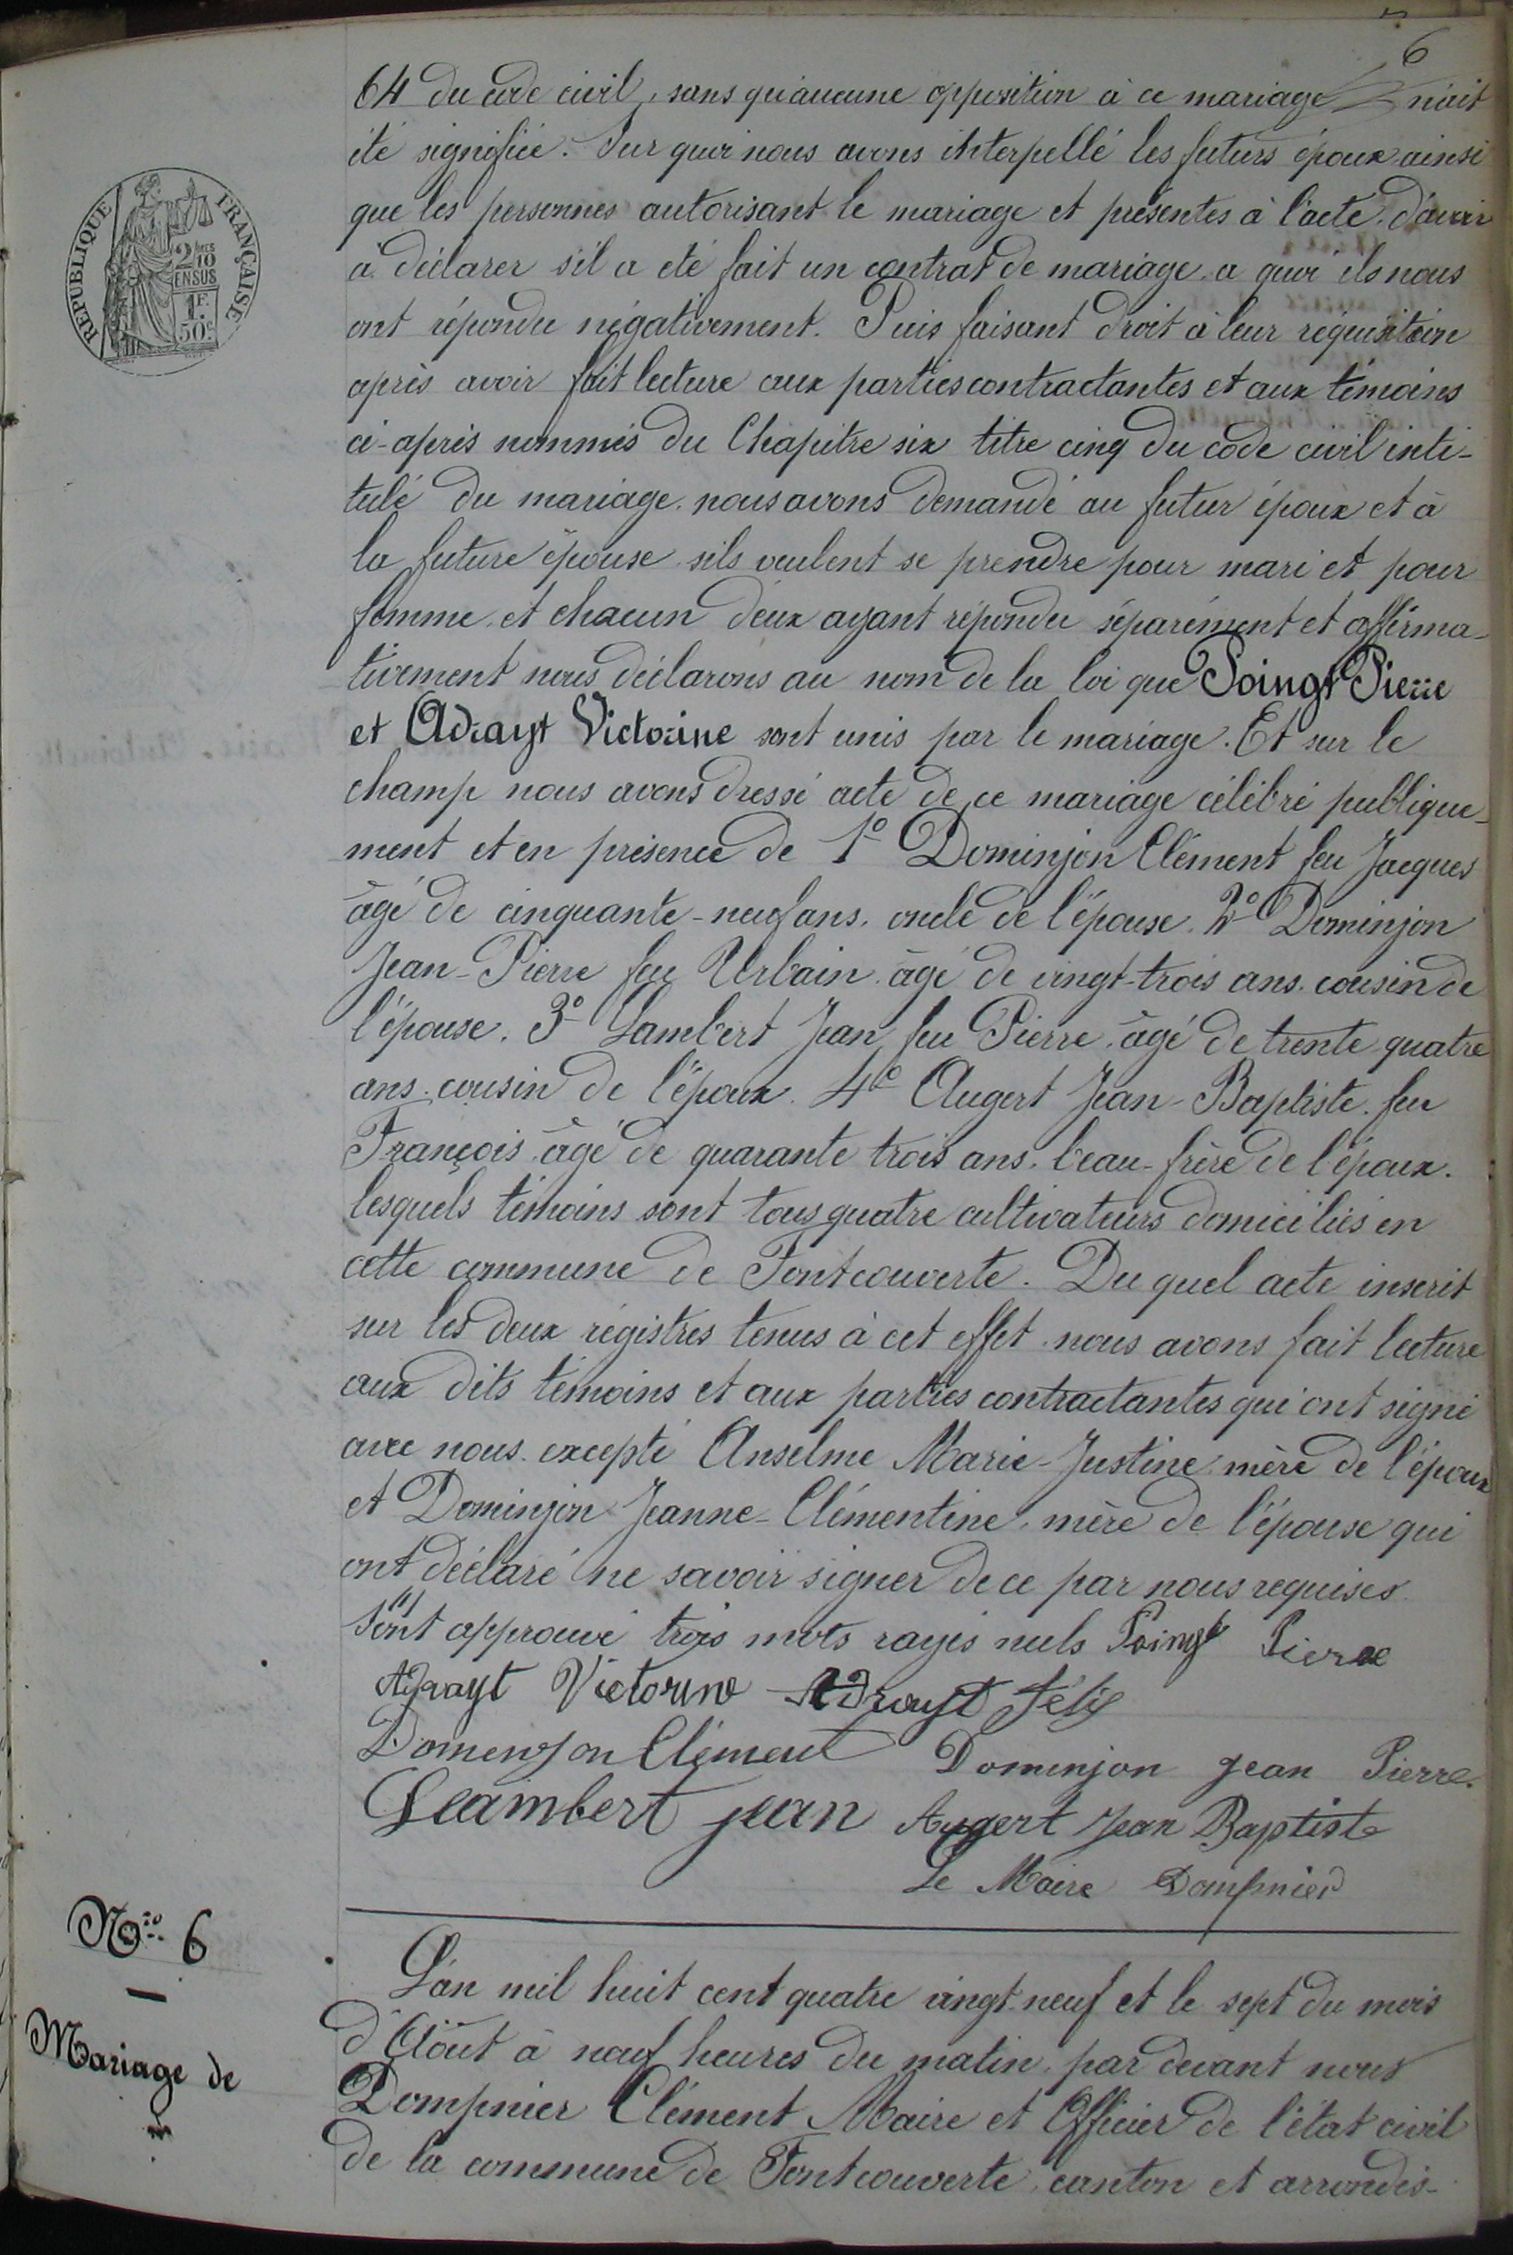 6
64 du code civil, sans qu'aucune opposition à ce mariage n'ait
été signifiée. Sur quoi nous avons interpellé les futurs époux ainsi
que les personnes autorisant le mariage et présentes à l'acte d'avoir
à déclarer s'il a été fait un contrat de mariage, a quoi ils nous
ont répondu négativement. Puis faisant droit à leur réquisitoire
après avoir fait lecture aux parties contractantes et aux témoins
ci-après nommés du Chapitre six titre cinq du code civil inti-
tulé du mariage, nous avons demandé au futur époux et à
la future épouse s'ils veulent se prendre pour mari et pour
femme, et chacun d'eux ayant répondu séparément et affirma-
tivement nous déclarons au nom de la loi que Poingt Pierre
et Adrayt Victorine sont unis par le mariage. Et sur le
champ nous avons dressé acte de ce mariage célébré publique-
ment et en présence de 1° Dominjon Clément feu Jacques
âgé de cinquante-neuf ans, oncle de l'épouse. 2° Dominjon
Jean-Pierre feu Urbain âgé de vingt-trois ans, cousin de
l'épouse. 3° Lambert Jean feu Pierre, âgé de trente quatre
ans, cousin de l'époux. 4° Augert Jean-Baptiste feu
François âgé de quarante trois ans, beau-frère de l'époux.
lesquels témoins sont tous quatre cultivateurs domiciliés en
cette commune de Fontcouverte. Du quel acte inscrit
sur les deux régistres tenus à cet effet nous avons fait lecture
aux dits témoins et aux parties contractantes qui ont signé
avec nous excepté Anselme Marie-Justine mère de l'époux
et Dominjon Jeanne-Clémentine, mère de l'épouse qui
ont déclaré ne savoir signer de ce par nous requises.
Sont approuvé trois mots rayés nuls Poingt Pierre
Adrayt Victorine Adrayt Félix
Domenjon Clément Dominjon Jean Pierre.
Leambert jean Augert Jean Baptiste
Le Maire Dompnier
N° 6
Mariage de
L'an mil huit cent quatre vingt-neuf et le sept du mois
d'Août à neuf heures du matin, par devant nous
Dompnier Clément Maire et Officier de l'état civil
de la commune de Fontcouverte, canton et arrondis-
REPUBLIQUE FRANÇAISE
2/10
EN SUS
1F.
50c